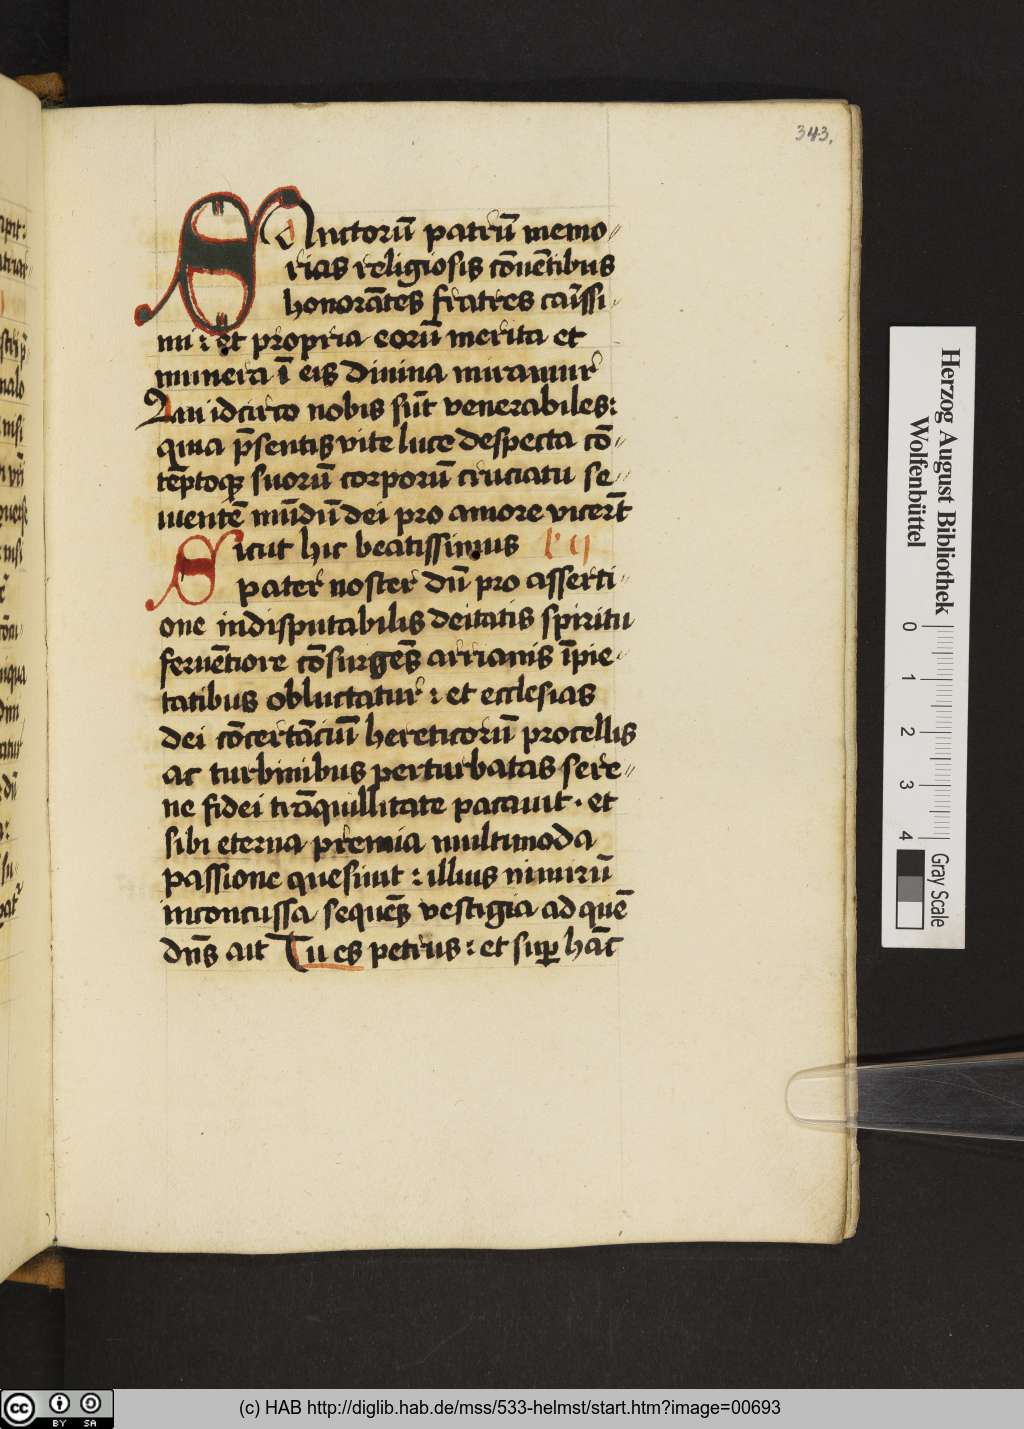 343.
Sanctorū patrū memo
rias religiosis cōuētibus
honorātes fratres cariſſi
mi : et propria eorū merita et
munera ī eis diuina miramur
Qui idcirco nobis sūt venerabiles:
quia p̄sentis vite luce despecta cō
tēptoqꝫ suorū corporū cruciatu se
uientē mūdū dei pro amore vicerūt
Sicut hic beatissimus l' ij
pater noster dū pro asserti
one indisputabilis deitatis spiritu
feruētiore cōsurgēs arrianis īpie
tatibus obluctatur : et ecclesias
dei cōcertāciū hereticorū procellis
ac turbinibus perturbatas sere
ne fidei trāquillitate pacauit . et
sibi eterna premia multimoda
passione quesiuit : illius nimirū
inconcussa sequēs vestigia ad quē
dn̄s ait Tu es petrus : et suꝑ hāc
Herzog August Bibliothek
Wolfenbüttel
0 1 2 3 4
Gray Scale
cc BY SA
(c) HAB http://diglib.hab.de/mss/533-helmst/start.htm?image=00693